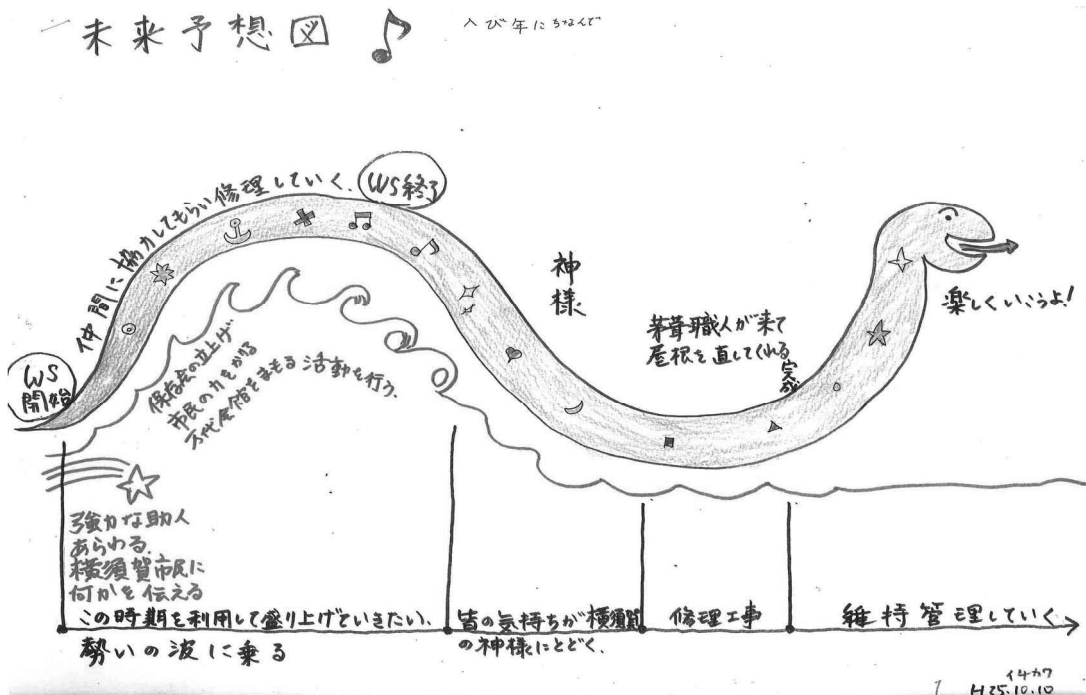 未来予想図♪
へび年にちなんで
WS開始
仲間に協力してもらい修理していく.
WS終了
保存会の立上げ
市民の力をかりる
万代会館をまもる活動を行う.
神様
茅葺職人が来て
屋根を直してくれる
完成
楽しくいこうよ!
強力な助人
あらわる.
横須賀市民に
何かを伝える
この時期を利用して盛り上げていきたい.
勢いの波に乗る
皆の気持ちが横須賀
の神様にとどく.
修理工事
維持管理していく
1
H25.10.10